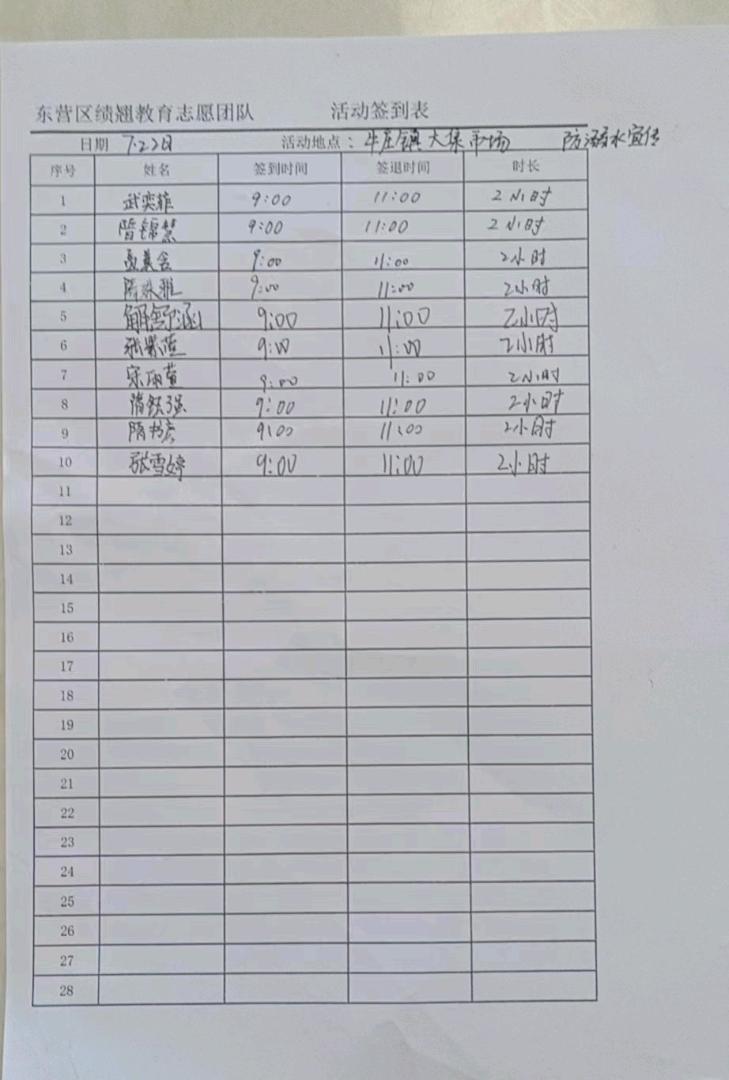 东营区绩翘教育志愿团队 活动签到表
日期 7.22日 活动地点：牛庄镇大集市场 防溺水宣传
序号 姓名 签到时间 签退时间 时长
1 武奕菲 9:00 11:00 2小时
2 隋锦慧 9:00 11:00 2小时
3 9:00 11:00 2小时
4 9:00 11:00 2小时
5 解舒涵 9:00 11:00 2小时
6 9:00 11:00 2小时
7 宋雨萱 9:00 11:00 2小时
8 9:00 11:00 2小时
9 隋书彦 9:00 11:00 2小时
10 张雪婷 9:00 11:00 2小时
11
12
13
14
15
16
17
18
19
20
21
22
23
24
25
26
27
28